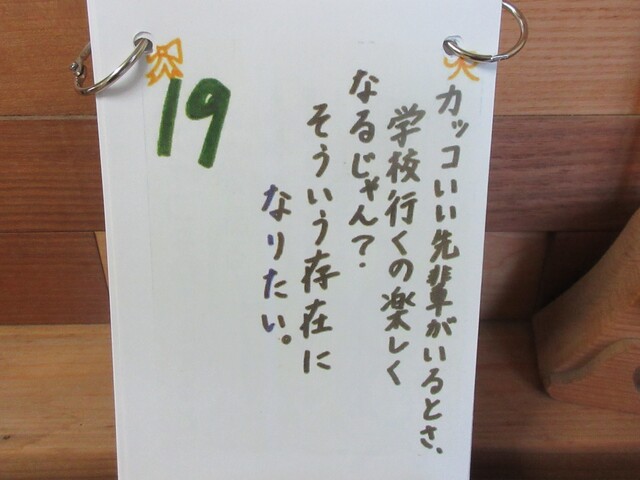 カッコいい先輩がいるとさ、
学校行くの楽しく
なるじゃん?
そういう存在に
なりたい。
19